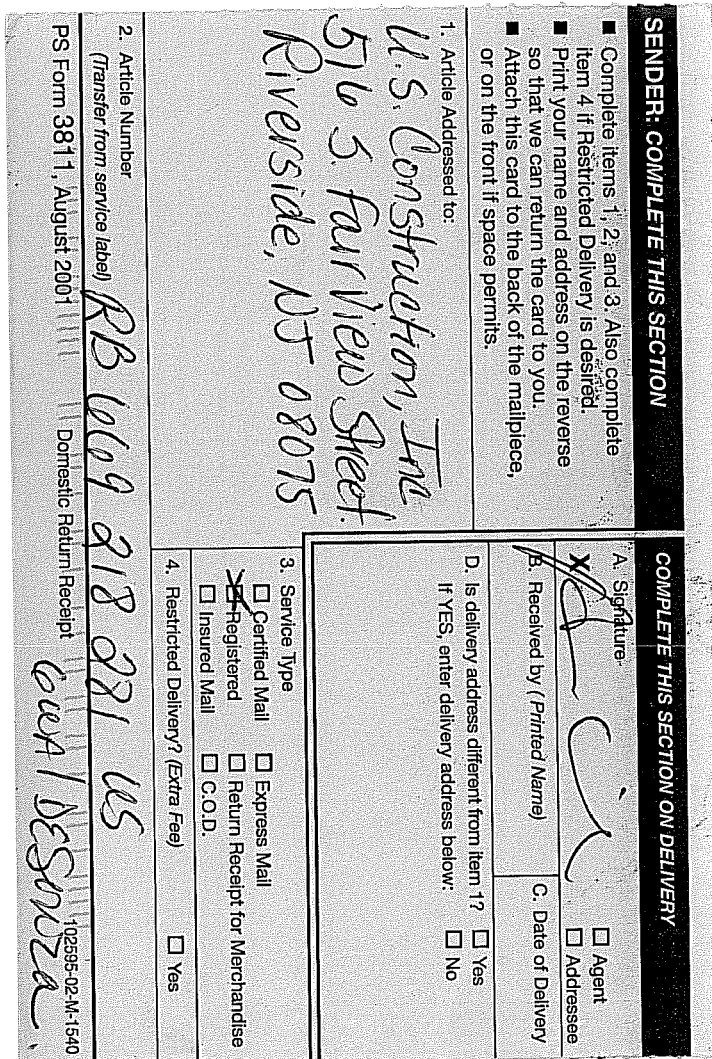 SENDER: COMPLETE THIS SECTION
■ Complete items 1, 2, and 3. Also complete
item 4 if Restricted Delivery is desired.
■ Print your name and address on the reverse
so that we can return the card to you.
■ Attach this card to the back of the mailpiece,
or on the front if space permits.
1. Article Addressed to:
U.S. Construction, Inc
516 S. Fairview Street.
Riverside, NJ 08075
2. Article Number
(Transfer from service label) RB 669 218 281 US
PS Form 3811, August 2001 Domestic Return Receipt 102595-02-M-1540
COMPLETE THIS SECTION ON DELIVERY
A. Signature
X
☐ Agent
☐ Addressee
B. Received by (Printed Name)
C. Date of Delivery
D. Is delivery address different from item 1? ☐ Yes
If YES, enter delivery address below: ☐ No
3. Service Type
☐ Certified Mail ☐ Express Mail
☒ Registered ☐ Return Receipt for Merchandise
☐ Insured Mail ☐ C.O.D.
4. Restricted Delivery? (Extra Fee) ☐ Yes